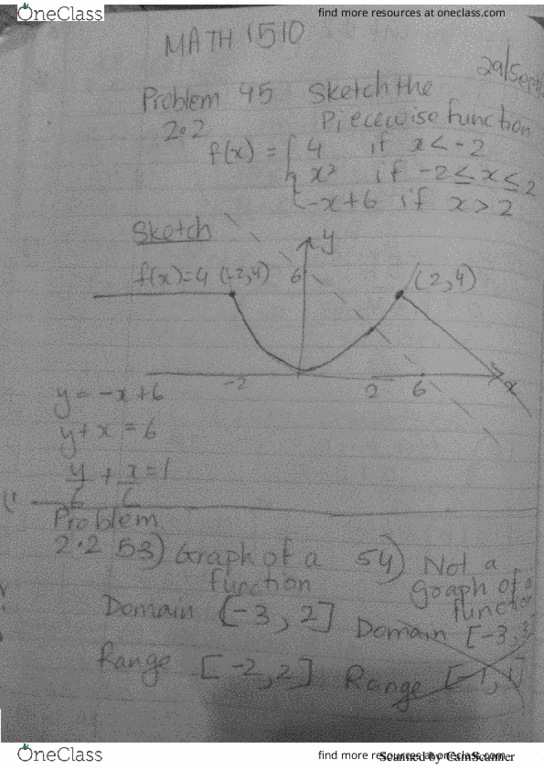 OneClass
find more resources at oneclass.com
MATH 1510
29/Sept
Problem 45 Sketch the
2.2 Piecewise function
f(x) = { 4 if x < -2
x² if -2 ≤ x ≤ 2
-x+6 if x > 2
Sketch
y
f(x)=4 (-2,4) 6 (2,4)
-2 2 6 x
y = -x+6
y+x = 6
y/6 + x/6 = 1
Problem
2.2 53) Graph of a function
Domain [-3, 2]
Range [-2,2]
54) Not a graph of a function
Domain [-3,3]
Range [-1,1]
OneClass
find more resources at oneclass.com
Scanned by CamScanner